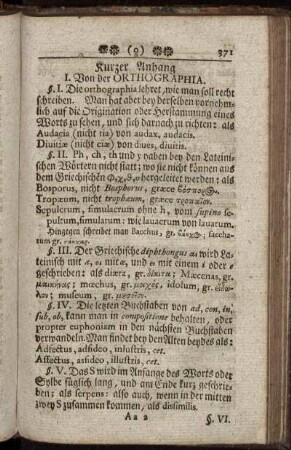 (o) 371
Kurzer Anhang
I. Von der ORTHOGRAPHIA.
§. I. Die orthographia lehret, wie man soll recht
schreiben. Man hat aber bey derselben vornehm-
lich auf die Origination oder Herstammung eines
Worts zu sehen, und sich darnach zu richten: als
Audacia (nicht tia) von audax, audacis.
Divitiæ (nicht ciæ) von dives, divitis.
§. II. Ph, ch, th und y haben bey den Lateini-
schen Wörtern nicht statt; wo sie nicht können aus
dem Griechischen Φ, χ, θ, υ hergeleitet werden: als
Bosporus, nicht Bosphorus, græce
Tropæum, nicht trophæum, græce τροπαῖον.
Sepulcrum, simulacrum ohne h, vom supino se-
pultum, simulatum: wie lavacrum von lavatum.
Hingegen schreibet man Bacchus, gr. ; saccha-
rum gr.
§. III. Der Griechische diphthongus αι wird La-
teinisch mit æ, οι mit œ, und ει mit einem i oder e
geschrieben: als diæta, gr. δίαιτα; Mæcenas, gr.
μαικήνας; mœchus, gr. μοιχός; idolum, gr. εἴδω-
λον; museum, gr. μουσεῖον.
§. IV. Die letzten Buchstaben von ad, con, in,
sub, ob, kan man in compositione behalten, oder
propter euphoniam in den nächsten Buchstaben
verwandeln. Man findet bey den Alten beydes als:
Adfectus, adsideo, inlustris, cet.
Affectus, assideo, illustris, cet.
§. V. Das S wird im Anfange des Worts oder
Sylbe füglich lang, und am Ende kurz geschrie-
ben: als serpens: also auch, wenn in der mitten
zwey S zusammen kommen, als dissimilis.
Aa 2 §. VI.